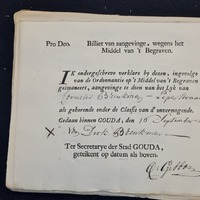 Pro Deo. Billiet van aangevinge, wegens het
Middel van 't Begraven.
IK ondergeschreve verklare by dezen, ingevolge
van de Ordonnantie op 't Middel van 't Begraven
geëmaneert, aangevinge te doen van het Lyk van
Cornelis Breukman
als gehorende onder de Classe van d'onvermogende.
Gedaan binnen GOUDA, den 16 September
X Dirk Breukman
Ter Secretarye der Stad GOUDA,
geteikent op datum als boven.